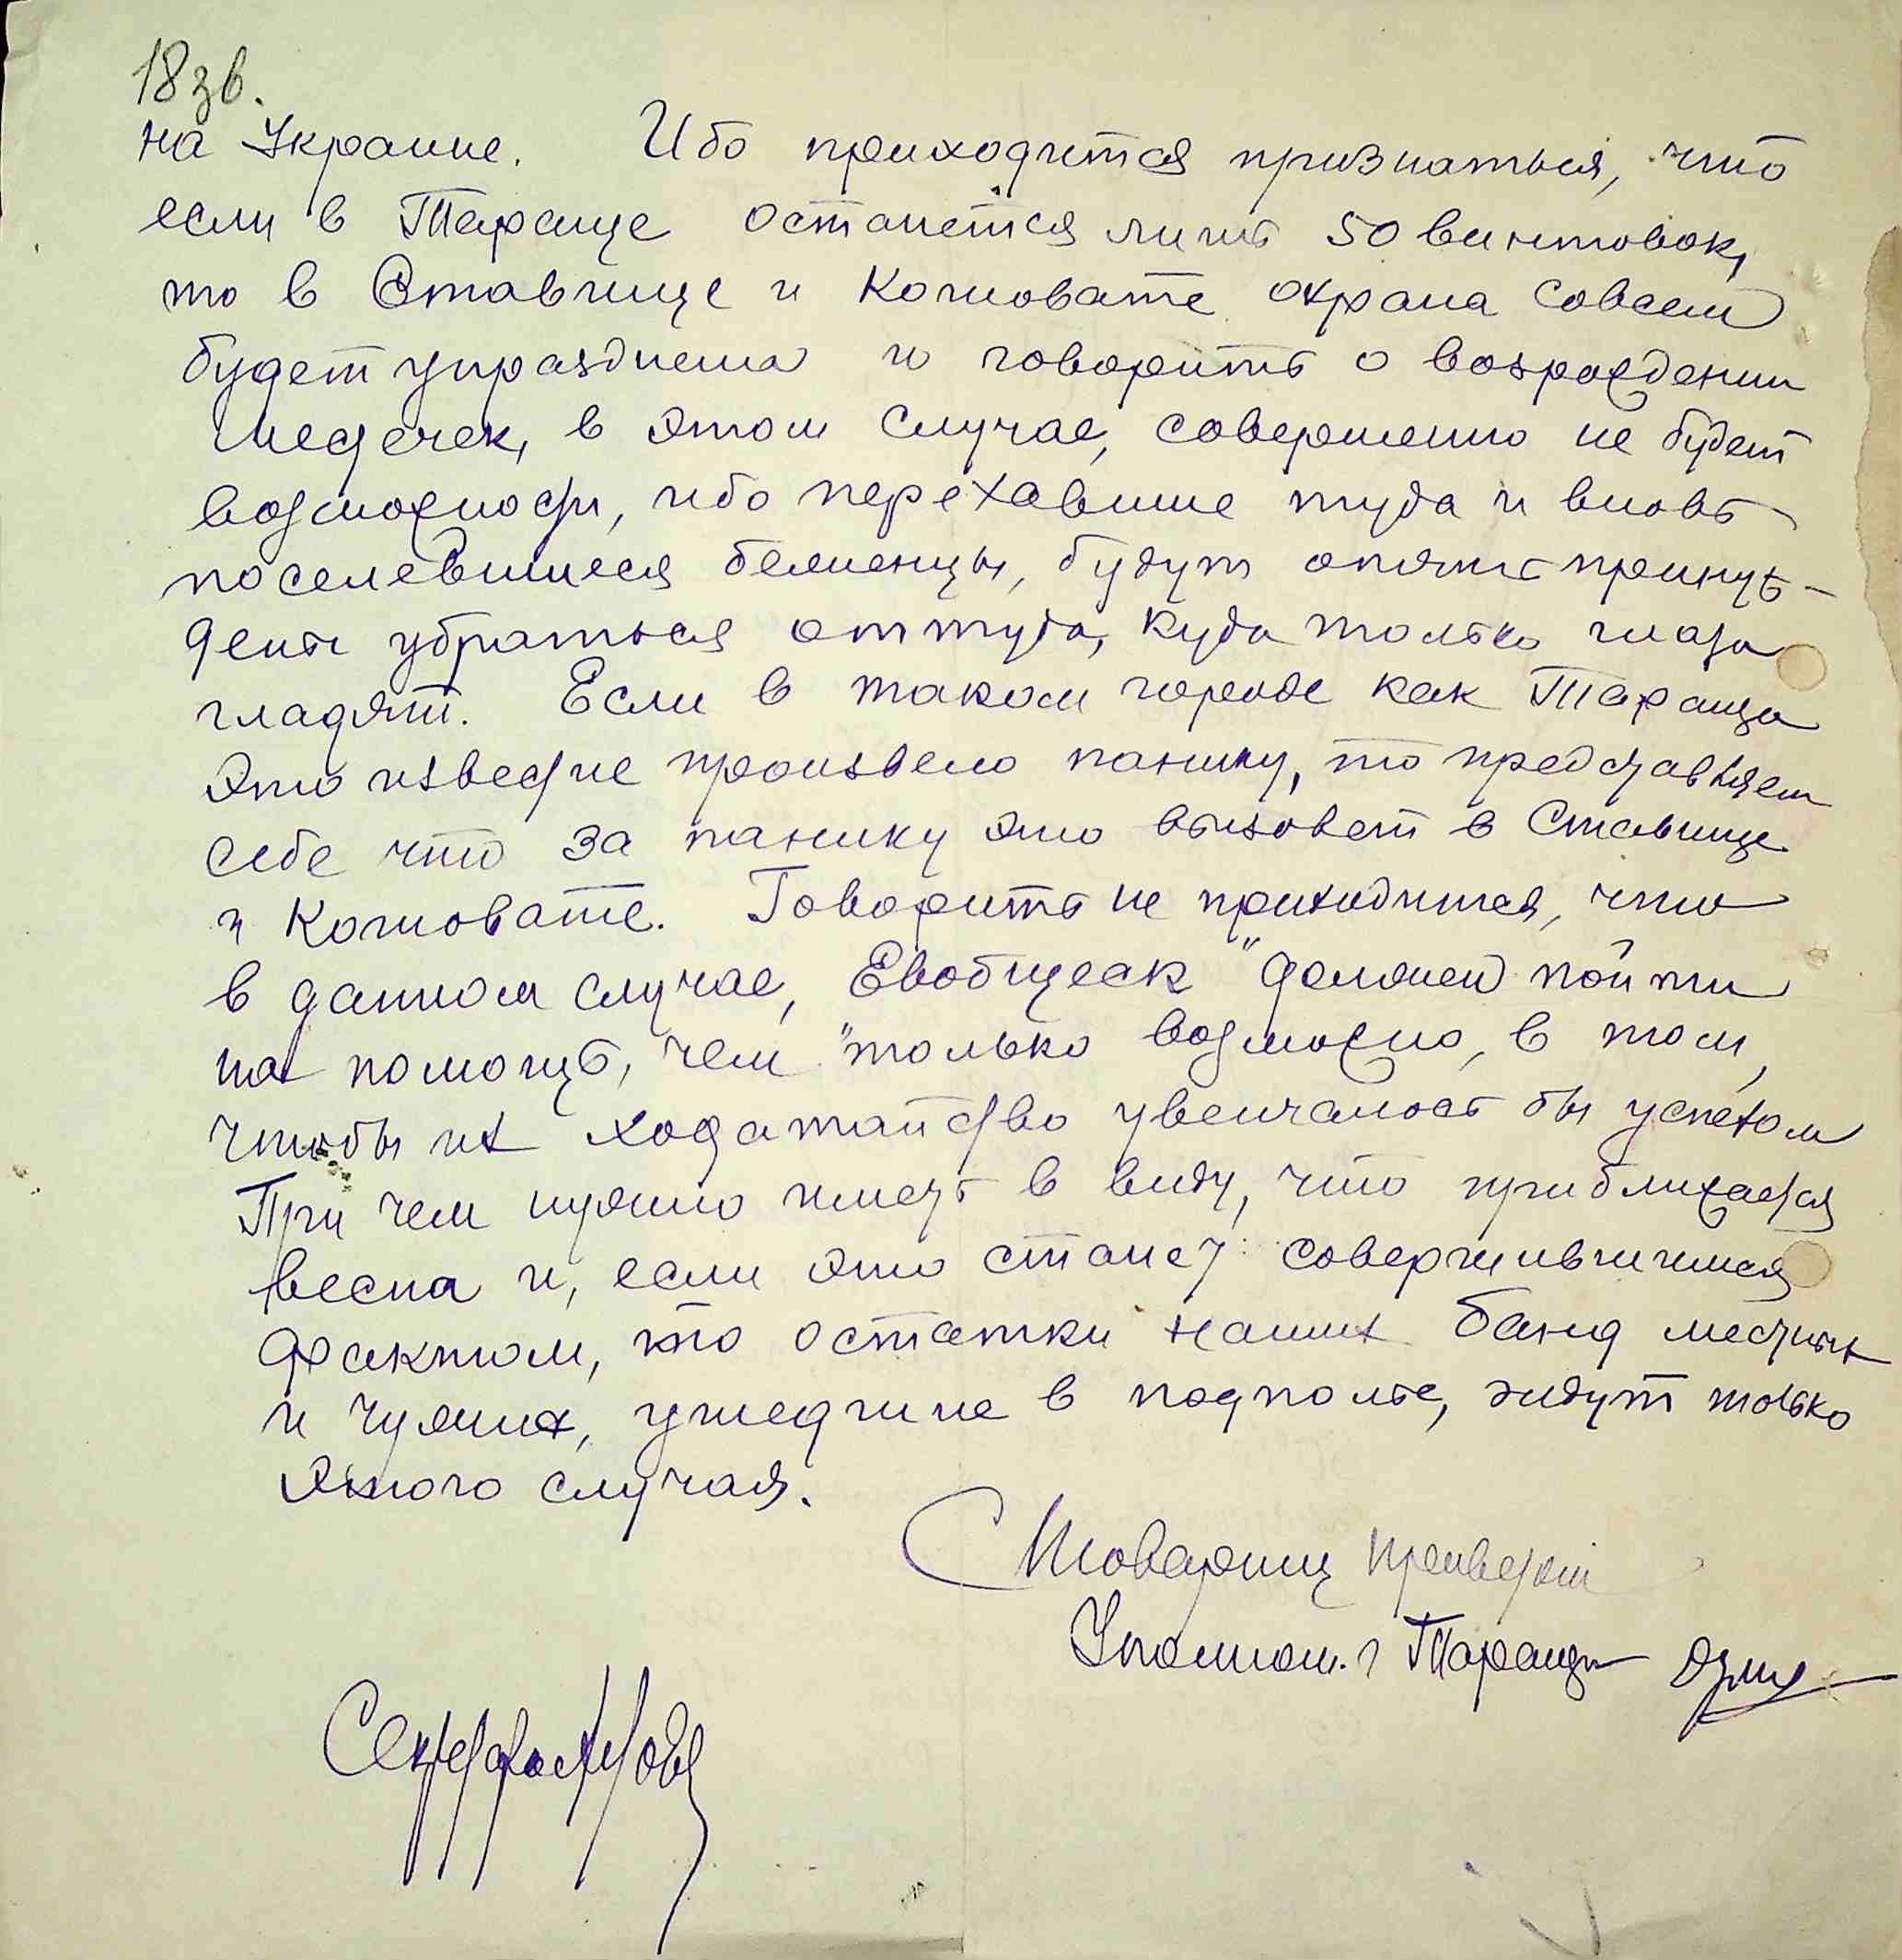 18 зв.
на Украине. Ибо приходится признаться, что
если в Тараще останется лишь 50 винтовок,
то в Ставище и Кошовате охрана совсем
будет упразднена и говорить о возрождении
местечек, в этом случае, совершенно не будет
возможности, ибо перехавшие туда и вновь
поселевшиеся беженцы, будут опять принуж-
дены убраться оттуда, куда только глаза
гладят. Если в таком городе как Тараща
это известие произвело панику, то представляем
себе что за панику это вызовет в Ставище
и Кошовате. Говорить не приходится, что
в данном случае, "Евобщестк" должен пойти
на помощь, чем только возможно, в том,
чтобы их ходатайство увенчалось бы успехом
При чем нужно иметь в виду, что приближается
весна и, если это станет совершившимся
фактом, то остатки наших банд местных
и чужих, ушедшие в подполье, ждут только
этого случая.
С товарищ приветом
Уполном. г Таращи